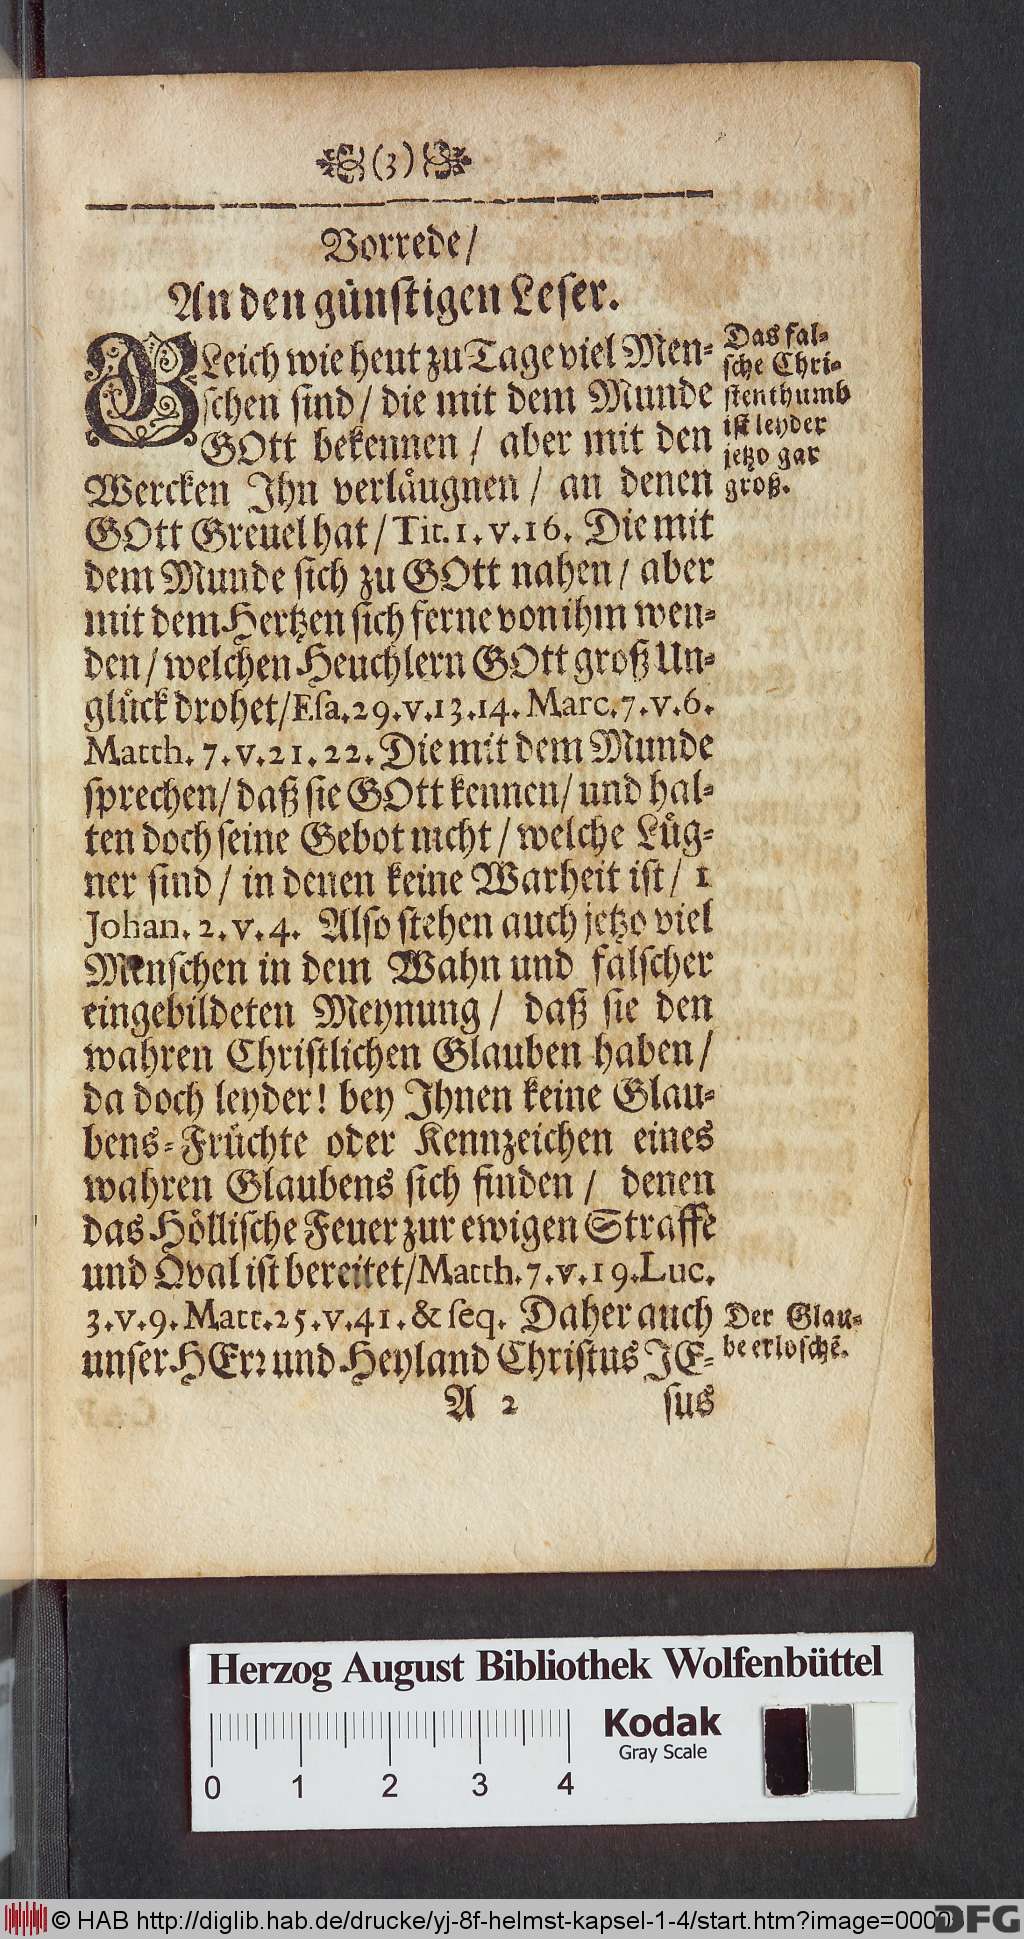 (3)
Vorrede/
An den günstigen Leser.
GLeich wie heut zu Tage viel Men-
schen sind/ die mit dem Munde
GOtt bekennen/ aber mit den
Wercken Ihn verläugnen/ an denen
GOtt Greuel hat/ Tit. 1. v. 16. Die mit
dem Munde sich zu GOtt nahen/ aber
mit dem Hertzen sich ferne von ihm wen-
den/ welchen Heuchlern GOtt groß Un-
glück drohet/ Esa. 29. v. 13. 14. Marc. 7. v. 6.
Matth. 7. v. 21. 22. Die mit dem Munde
sprechen/ daß sie GOtt kennen/ und hal-
ten doch seine Gebot nicht/ welche Lüg-
ner sind/ in denen keine Warheit ist/ 1
Johan. 2. v. 4. Also stehen auch jetzo viel
Menschen in dem Wahn und falscher
eingebildeten Meynung/ daß sie den
wahren Christlichen Glauben haben/
da doch leyder! bey Ihnen keine Glau-
bens-Früchte oder Kennzeichen eines
wahren Glaubens sich finden/ denen
das Höllische Feuer zur ewigen Straffe
und Qval ist bereitet/ Matth. 7. v. 19. Luc.
3. v. 9. Matt. 25. v. 41. & seq. Daher auch
unser HErr und Heyland Christus JE-
A 2 sus
Das fal-
sche Chri-
stenthumb
ist leyder
jetzo gar
groß.
Der Glau-
be erloschẽ.
Herzog August Bibliothek Wolfenbüttel
Kodak
Gray Scale
0 1 2 3 4
© HAB http://diglib.hab.de/drucke/yj-8f-helmst-kapsel-1-4/start.htm?image=0000
DFG